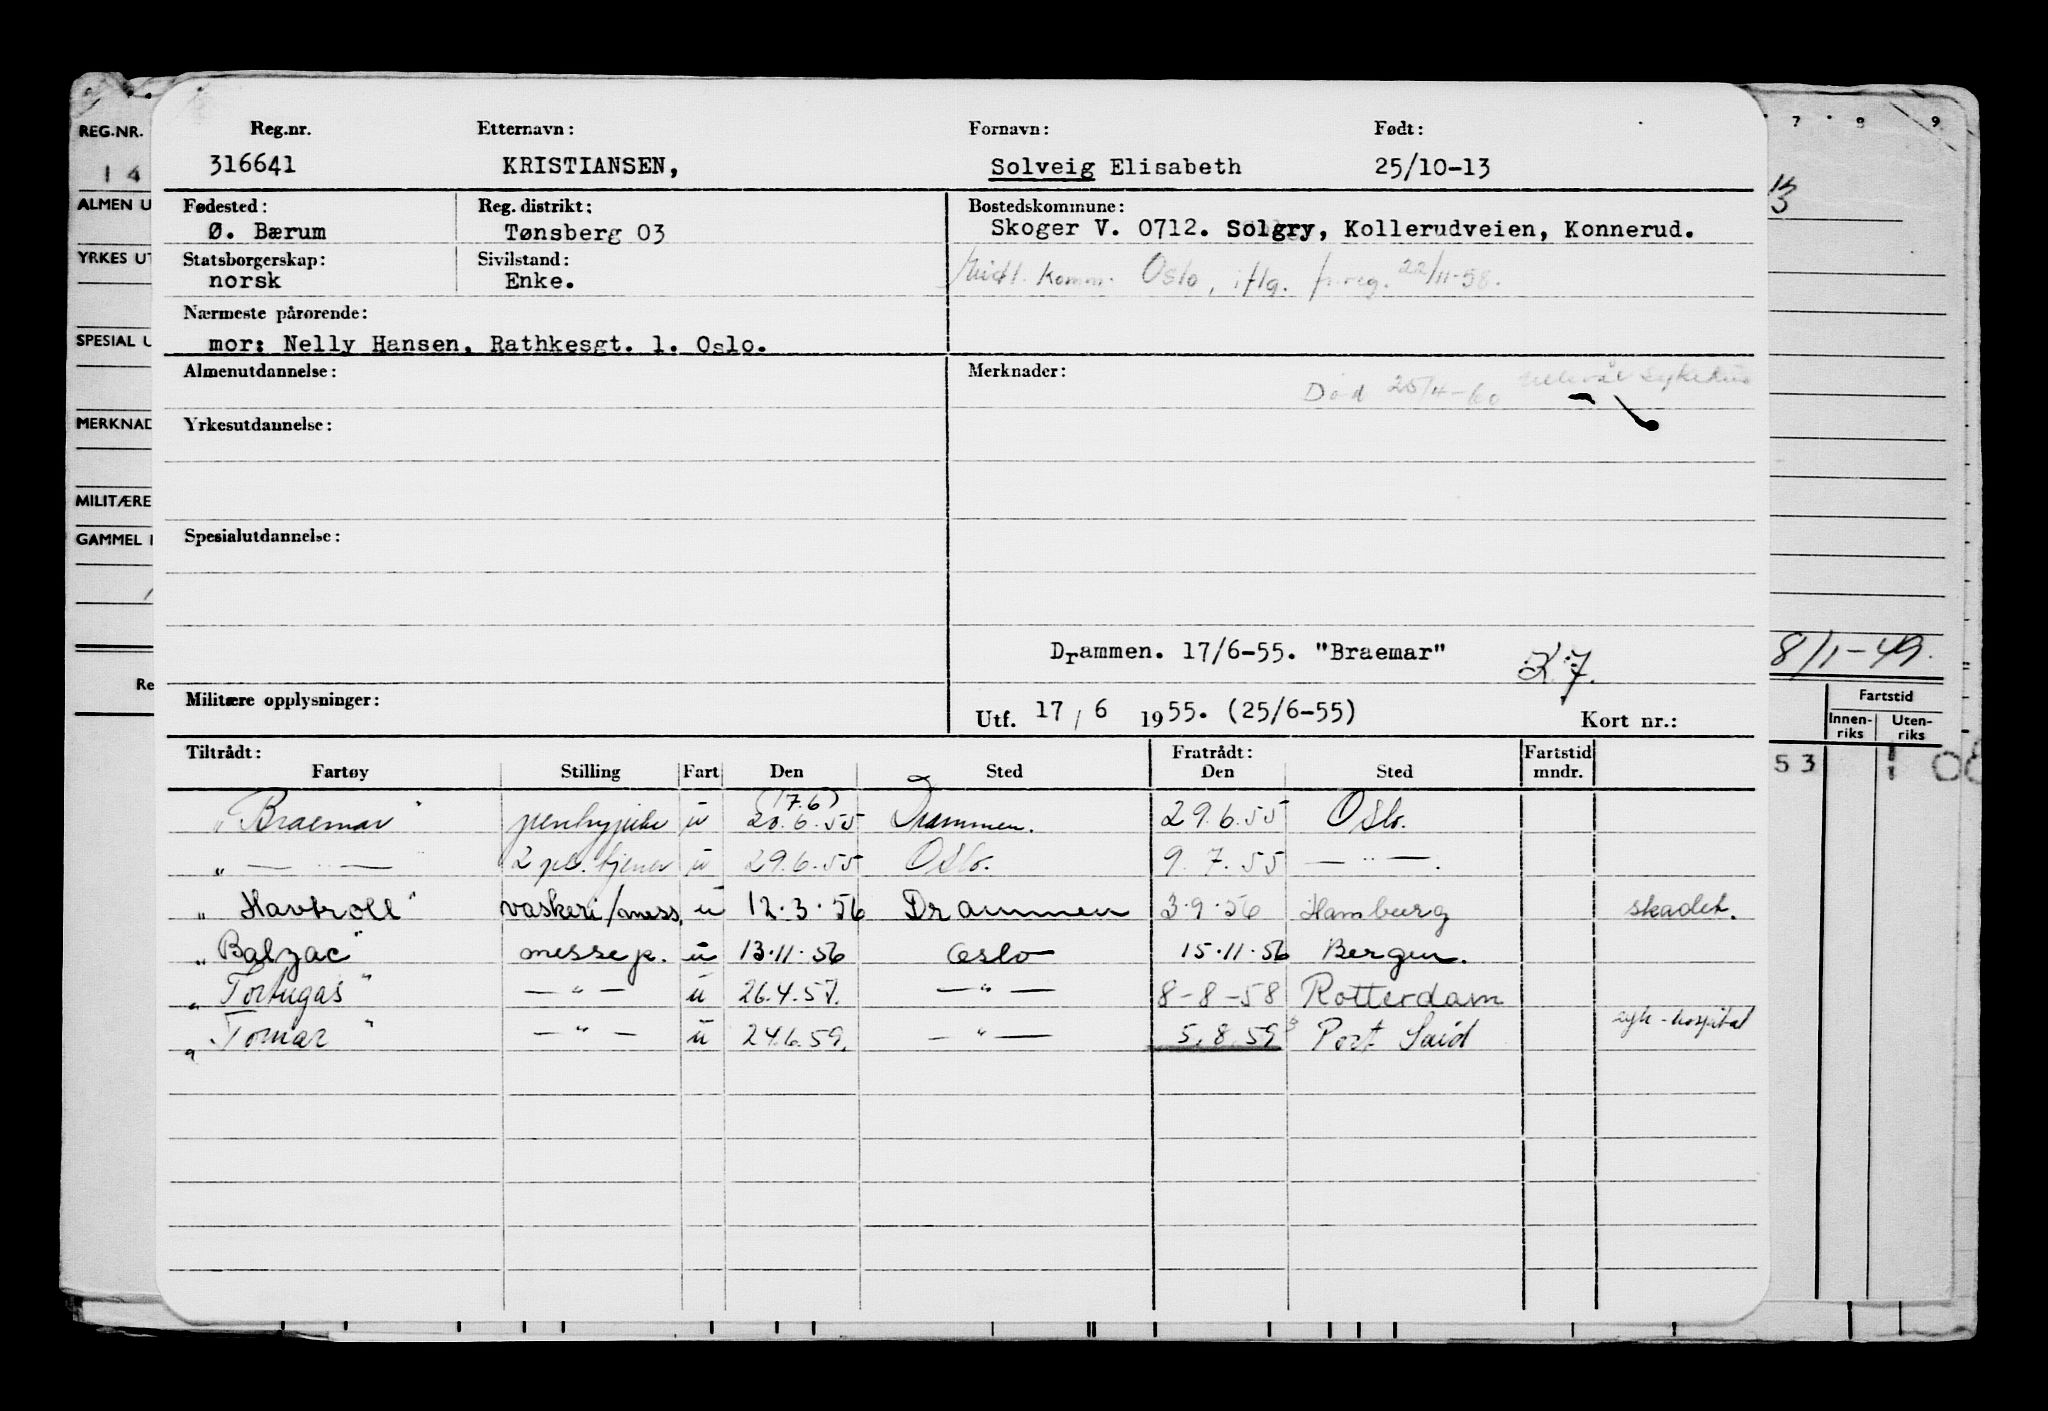 REG.NR. Reg.nr. Etternavn: Fornavn: Født: 7 8 9
1 4 316641 KRISTIANSEN, Solveig Elisabeth 25/10-13
ALMEN U Fødested: Reg. distrikt: Bostedskommune: 13
Ø. Bærum Tønsberg 03 Skoger V. 0712. Solgry, Kollerudveien, Konnerud.
YRKES UT Statsborgerskap: Sivilstand:
norsk Enke. Midl. komm. Oslo, iflg. fr.reg. 22/11-58.
Nærmeste pårørende:
SPESIAL U mor: Nelly Hansen, Rathkesgt. 1. Oslo.
Almenutdannelse: Merknader: Død 25/4-60 Ullevål sykehus
MERKNAD Yrkesutdannelse:
MILITÆRE
GAMMEL Spesialutdannelse:
Drammen. 17/6-55. "Braemar" K 7. 8/1-49.
Re Militære opplysninger: Utf. 17/6 1955. (25/6-55) Kort nr.: Fartstid
Innen-riks Uten-riks
Tiltrådt: Fratrådt: Fartstid
Fartøy Stilling Fart Den Sted Den Sted mndr. 53
(17.6)
"Braemar" pentrypike u 20.6.55 Drammen. 29.6.55 Oslo.
" — " — 2 pl. tjener u 29.6.55 Oslo. 9.7.55 — " —.
"Havtroll" vaskeri/mess. u 12.3.56 Drammen 3.9.56 Hamburg skadet.
"Balzac" messep. u 13.11.56 Oslo 15.11.56 Bergen.
"Tortugas" — " — u 26.4.57. — " — 8-8-58 Rotterdam
"Tomar" — " — u 24.6.59. — " — 5.8.59 Port Said syk-hospital